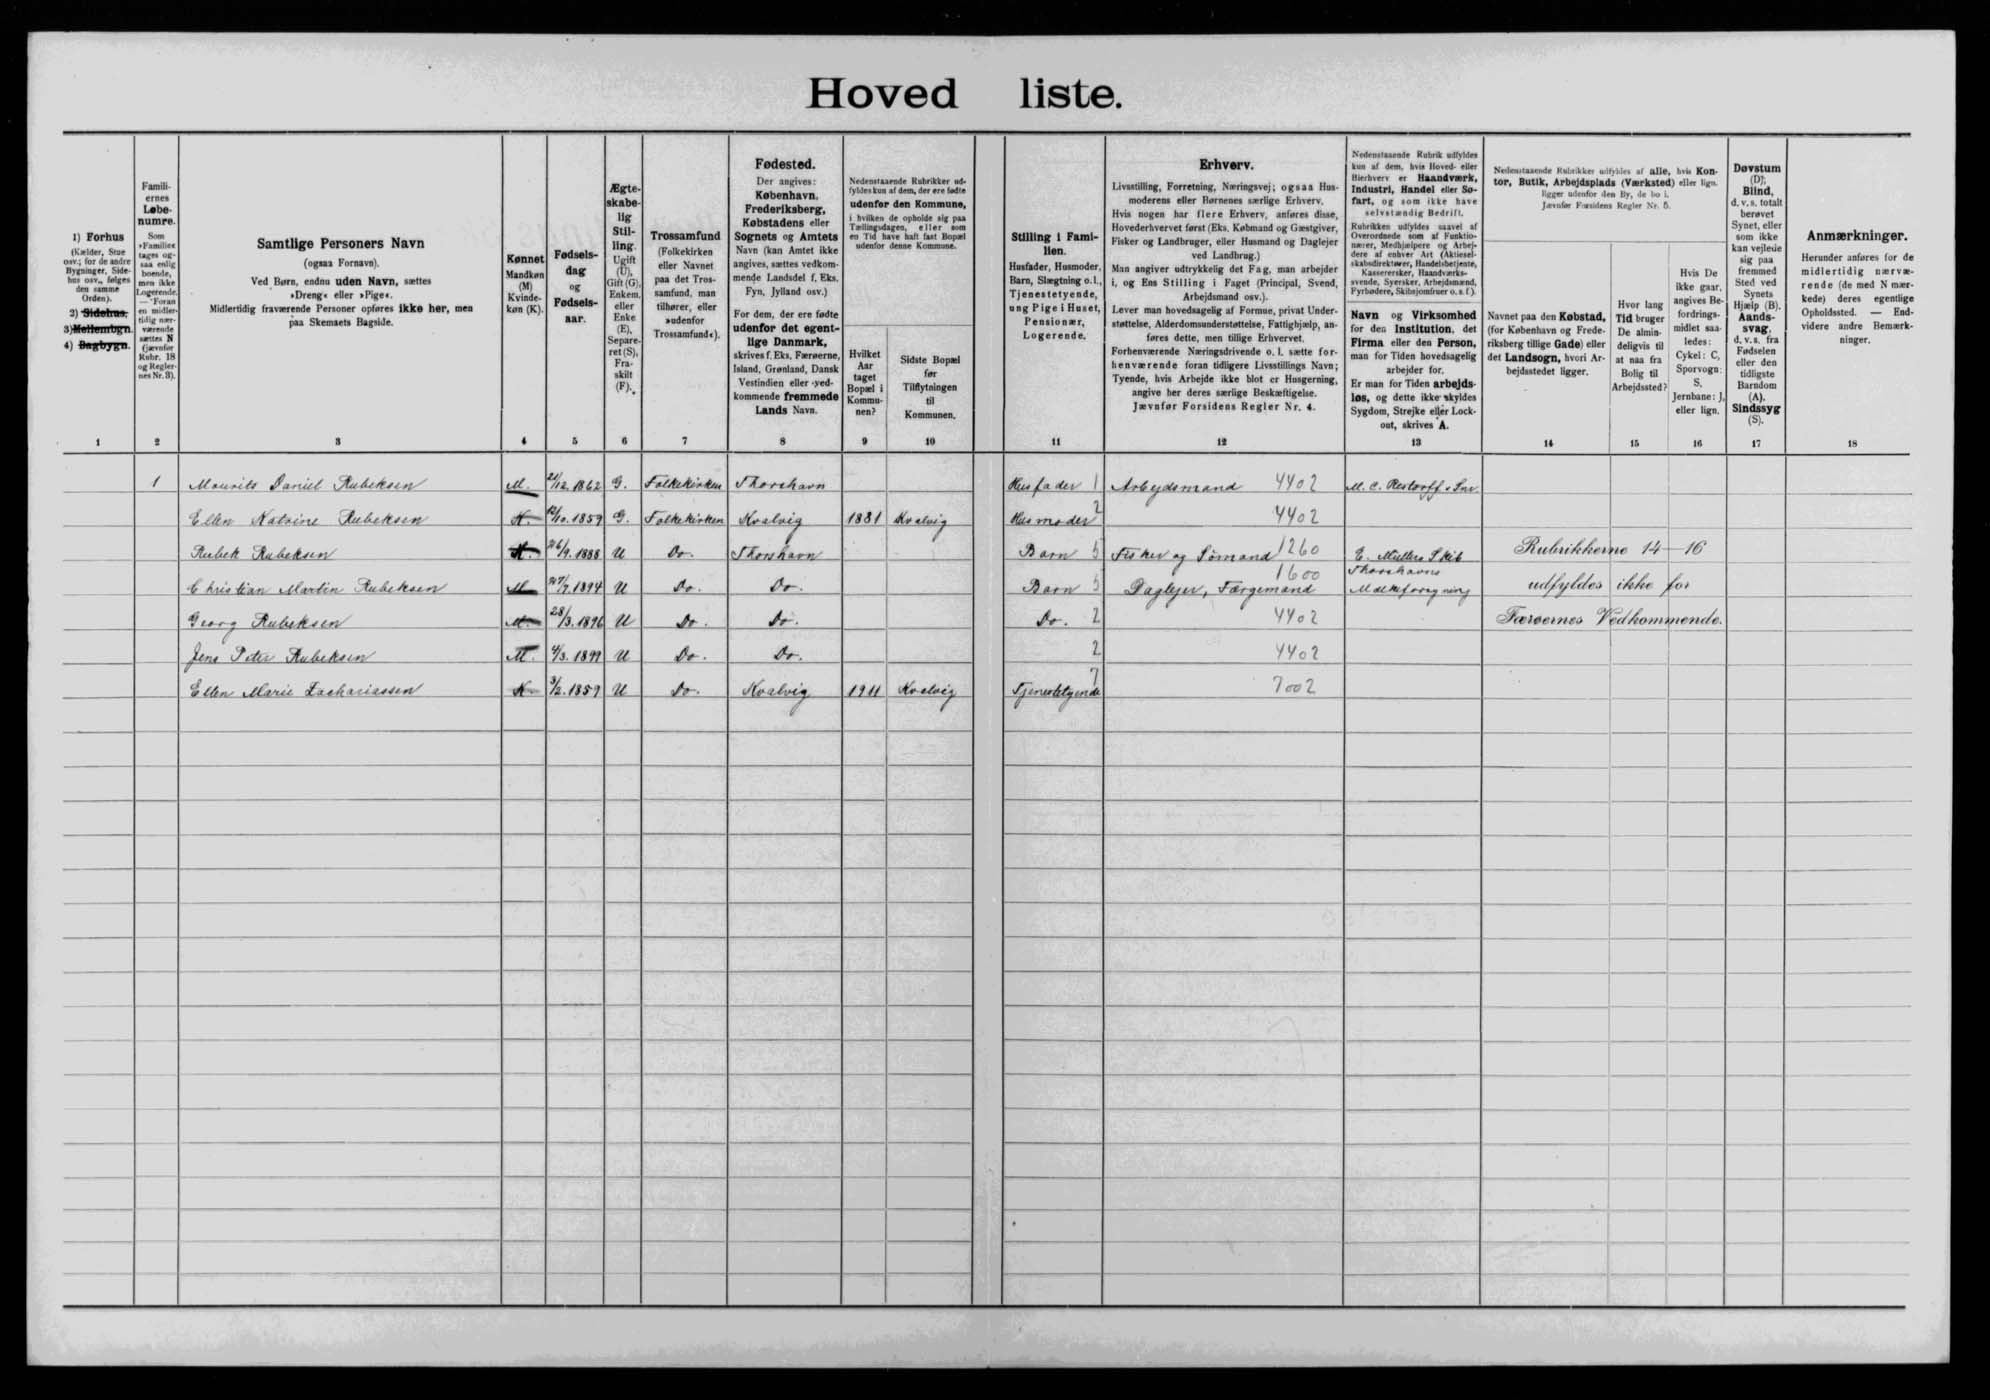 Hoved liste.
1) Forhus
(Kælder, Stue
osv.; for de andre
Bygninger, Side-
hus osv., følges
den samme
Orden).
2) Sidehus.
3) Mellembgn.
4) Bagbygn.
1
Famili-
ernes
Løbe-
numre.
Som
»Familie«
tages og-
saa enlig
boende,
men ikke
Logerende.
— Foran
en midler-
tidig nær-
værende
sættes N
(jævnfør
Rubr. 18
og Regler-
nes Nr. 3).
2
Samtlige Personers Navn
(ogsaa Fornavn).
Ved Børn, endnu uden Navn, sættes
»Dreng« eller »Pige«.
Midlertidig fraværende Personer opføres ikke her, men
paa Skemaets Bagside.
3
Kønnet
Mandkøn
(M)
Kvinde-
køn (K).
4
Fødsels-
dag
og
Fødsels-
aar.
5
Ægte-
skabe-
lig
Stil-
ling.
Ugift
(U),
Gift (G),
Enkem.
eller
Enke
(E),
Separe-
ret (S),
Fra-
skilt
(F).
6
Trossamfund
(Folkekirken
eller Navnet
paa det Tros-
samfund, man
tilhører, eller
»udenfor
Trossamfund«).
7
Fødested.
Der angives:
København,
Frederiksberg,
Købstadens eller
Sognets og Amtets
Navn (kan Amtet ikke
angives, sættes vedkom-
mende Landsdel f. Eks.
Fyn, Jylland osv.)
For dem, der ere fødte
udenfor det egent-
lige Danmark,
skrives f. Eks. Færøerne,
Island, Grønland, Dansk
Vestindien eller ved-
kommende fremmede
Lands Navn.
8
Nedenstaaende Rubrikker ud-
fyldes kun af dem, der ere fødte
udenfor den Kommune,
i hvilken de opholde sig paa
Tællingsdagen, eller som
en Tid have haft fast Bopæl
udenfor denne Kommune.
Hvilket
Aar
taget
Bopæl i
Kommu-
nen?
9
Sidste Bopæl
før
Tilflytningen
til
Kommunen.
10
Stilling i Fami-
lien.
Husfader, Husmoder,
Barn, Slægtning o.l.,
Tjenestetyende,
ung Pige i Huset,
Pensionær,
Logerende.
11
Erhverv.
Livsstilling, Forretning, Næringsvej; ogsaa Hus-
moderens eller Børnenes særlige Erhverv.
Hvis nogen har flere Erhverv, anføres disse,
Hovederhvervet først (Eks. Købmand og Gæstgiver,
Fisker og Landbruger, eller Husmand og Daglejer
ved Landbrug.)
Man angiver udtrykkelig det Fag, man arbejder
i, og Ens Stilling i Faget (Principal, Svend,
Arbejdsmand osv.).
Lever man hovedsagelig af Formue, privat Under-
støttelse, Alderdomsunderstøttelse, Fattighjælp, an-
føres dette, men tillige Erhvervet.
Forhenværende Næringsdrivende o. l. sætte for-
henværende foran tidligere Livsstillings Navn;
Tyende, hvis Arbejde ikke blot er Husgerning,
angive her deres særlige Beskæftigelse.
Jævnfør Forsidens Regler Nr. 4.
12
Nedenstaaende Rubrik udfyldes
kun af dem, hvis Hoved- eller
Bierhverv er Haandværk,
Industri, Handel eller Sø-
fart, og som ikke have
selvstændig Bedrift.
Rubrikken udfyldes saavel af
Overordnede som af Funktio-
nærer, Medhjælpere og Arbej-
dere af enhver Art (Aktiesel-
skabsdirektører, Handelsbetjente,
Kassererske, Haandværks-
svende, Syersker, Arbejdsmænd,
Fyrbødere, Skibsjomfruer o. s. f.).
Navn og Virksomhed
for den Institution, det
Firma eller den Person,
man for Tiden hovedsagelig
arbejder for.
Er man for Tiden arbejds-
løs, og dette ikke skyldes
Sygdom, Strejke eller Lock-
out, skrives A.
13
Nedenstaaende Rubrikker udfyldes af alle, hvis Kon-
tor, Butik, Arbejdsplads (Værksted) eller lign.
ligger udenfor den By, de bo i.
Jævnfør Forsidens Regler Nr. 5.
Navnet paa den Købstad,
(for København og Frede-
riksberg tillige Gade) eller
det Landsogn, hvori Ar-
bejdsstedet ligger.
14
Hvor lang
Tid bruger
De almin-
deligvis til
at naa fra
Bolig til
Arbejdssted?
15
Hvis De
ikke gaar,
angives Be-
fordrings-
midlet saa-
ledes:
Cykel: C,
Sporvogn:
S,
Jernbane: J,
eller lign.
16
Døvstum
(D);
Blind,
d. v. s. totalt
berøvet
Synet, eller
som ikke
kan vejlede
sig paa
fremmed
Sted ved
Synets
Hjælp (B).
Aands-
svag,
d. v. s. fra
Fødselen
eller den
tidligste
Barndom
(A).
Sindssyg
(S).
17
Anmærkninger.
Herunder anføres for de
midlertidig nærvæ-
rende (de med N mær-
kede) deres egentlige
Opholdssted. — End-
videre andre Bemærk-
ninger.
18
1 Mourits Daniel Rubeksen M. 21/12.1862 G. Folkekirken Thorshavn Husfader 1 Arbejdsmand 4402 M. C. Restorff & Snr.
Ellen Katrine Rubeksen K. 12/10.1859 G. Folkekirken Kvalvig 1881 Kvalvig Husmoder 2 4402
Rubek Rubeksen 26/9.1888 U Do. Thorshavn Barn 5 Fisker og Sømand 1260 E. Müllers Skib Rubrikkerne 14-16
Christian Martin Rubeksen M 27/7.1894 U Do. Do. Barn 5 Daglejer, Færgemand 1600 Thorshavns Mælkeforsyning udfyldes ikke for
Georg Rubeksen M. 28/3.1896 U Do. Do. Do. 2 4402 Færøernes Vedkommende.
Jens Peter Rubeksen M. 4/3.1899 U Do. Do. 2 4402
Ellen Marie Zachariassen K 3/2.1859 U Do. Kvalvig 1911 Kvalvig Tjenestetyende 7 7002